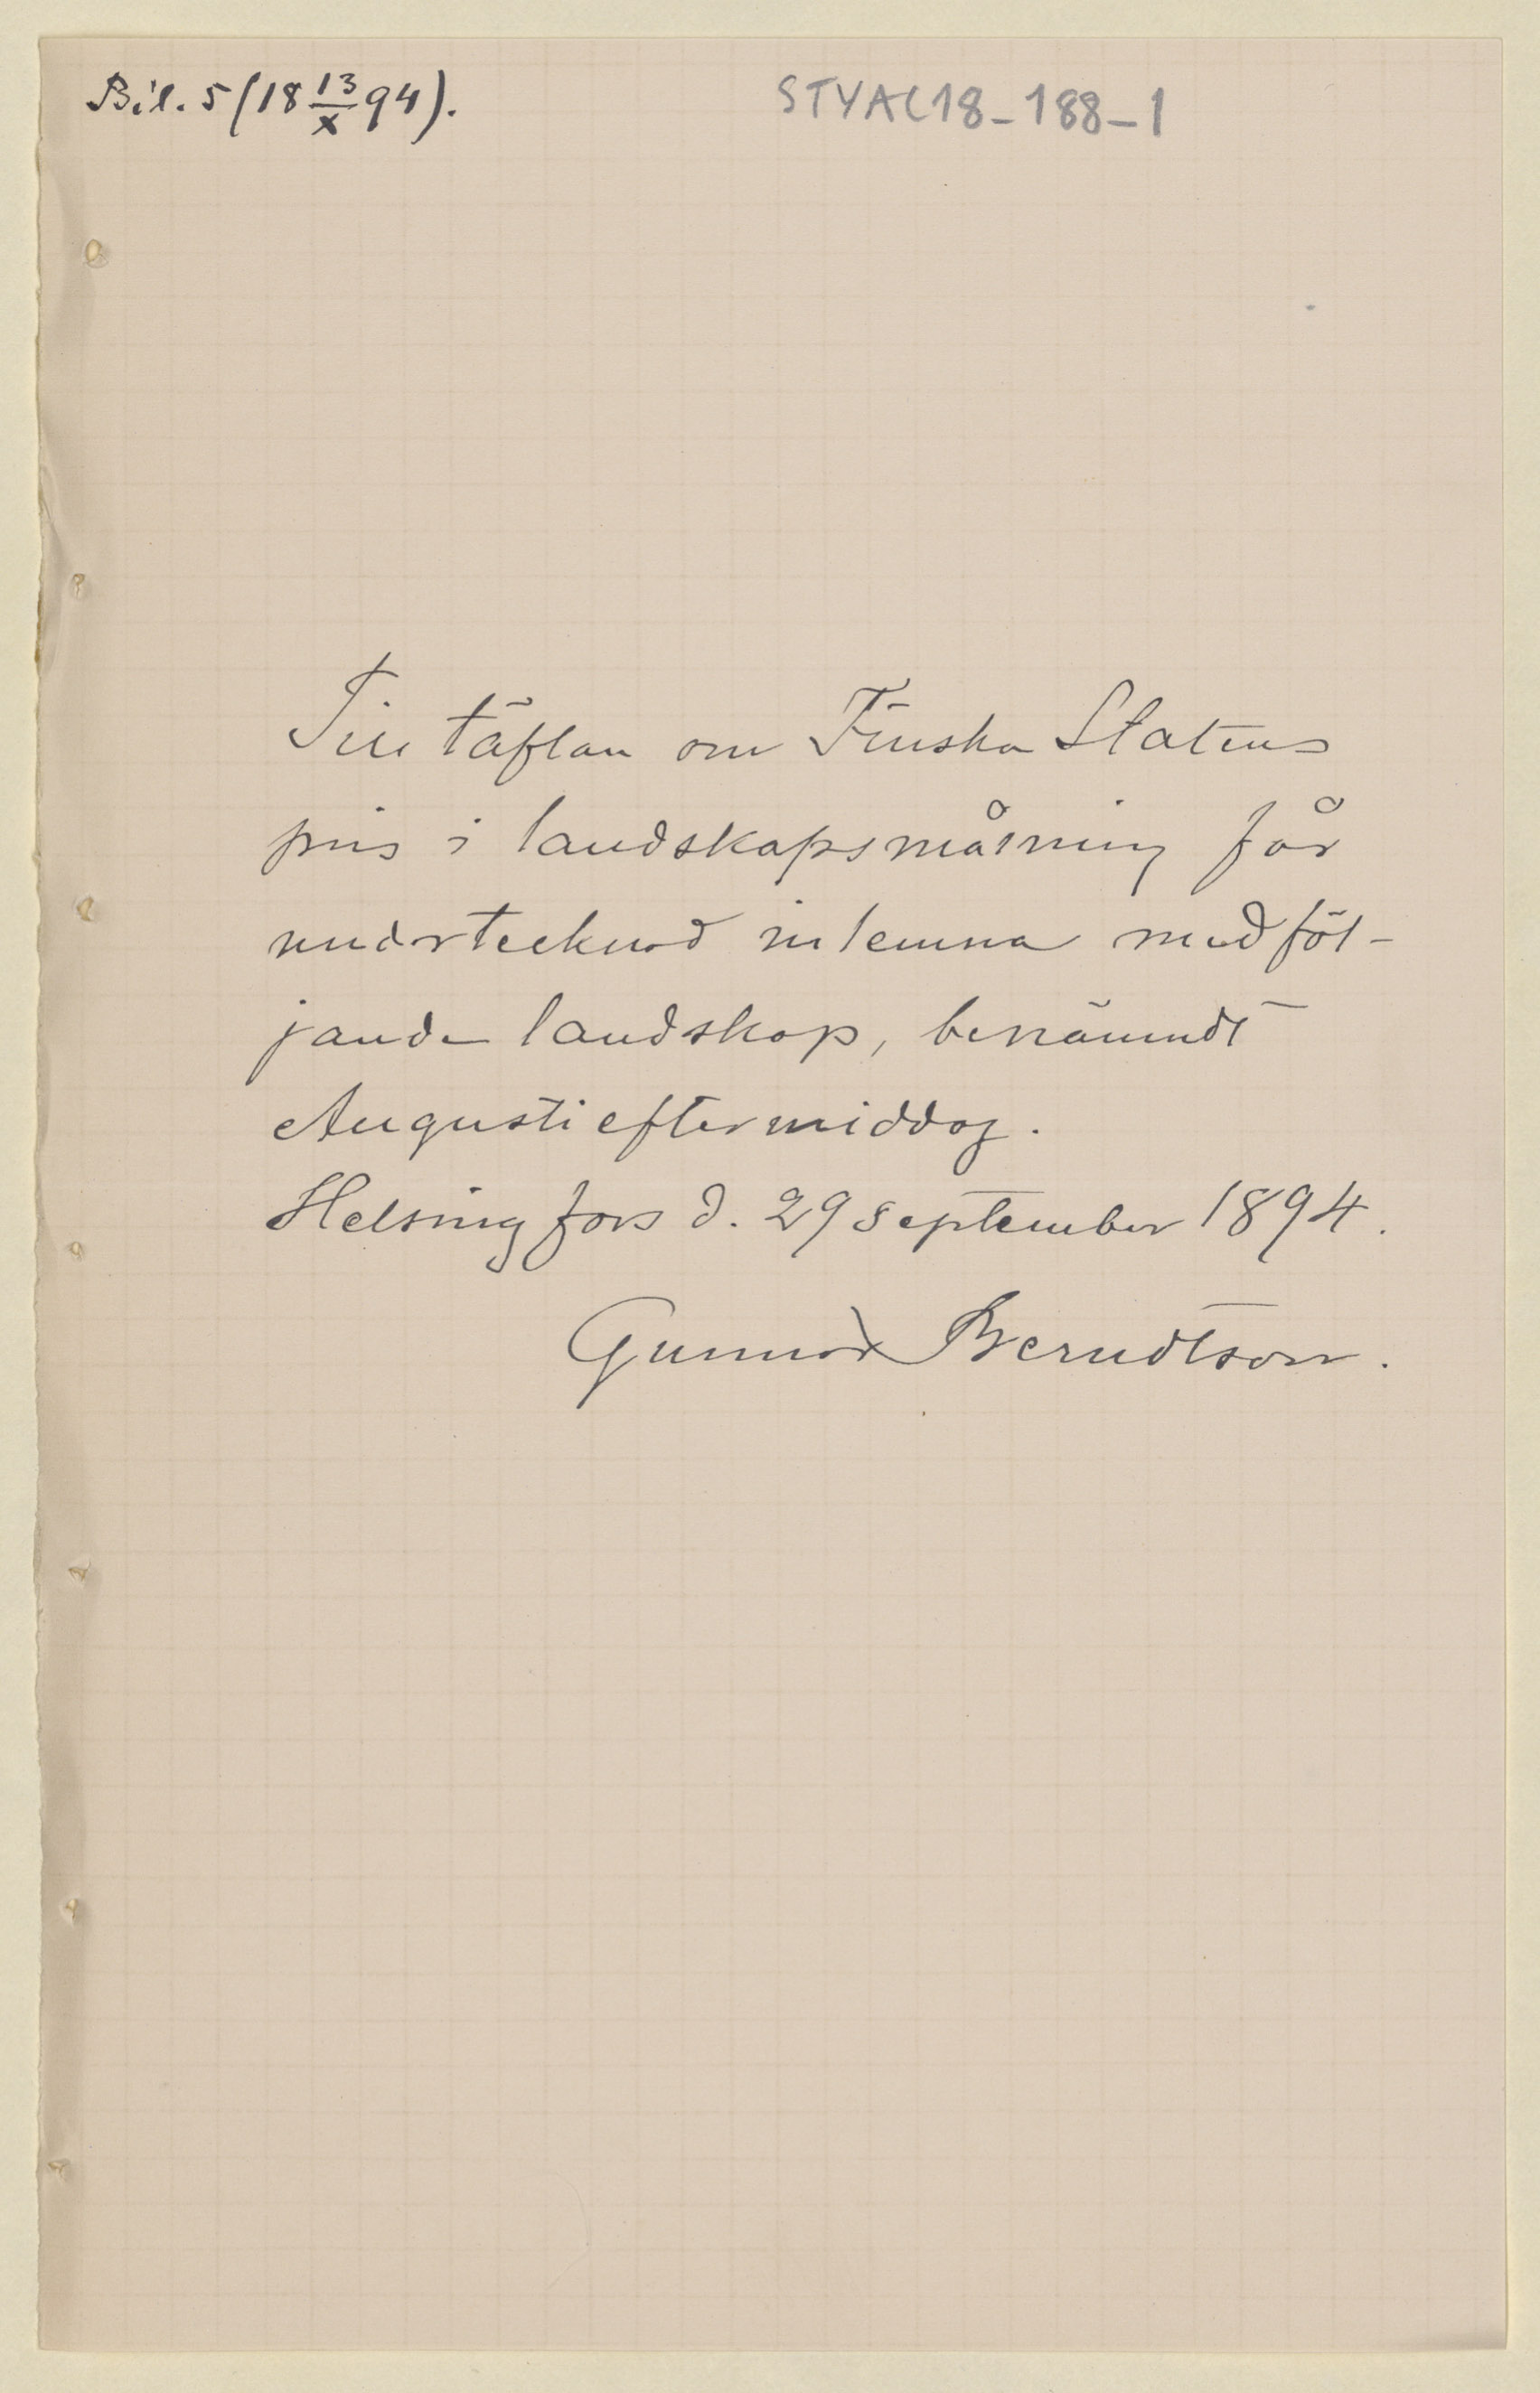 Bil. 5 (18 13/X 94).
STYAC18-188-1
Till täflan om Finska Statens
pris i landskapsmålning får
undertecknad inlemna medföl-
jande landskap, benämndt
Augustieftermiddag.
Helsingfors d. 29 september 1894.
Gunnar Berndtson.